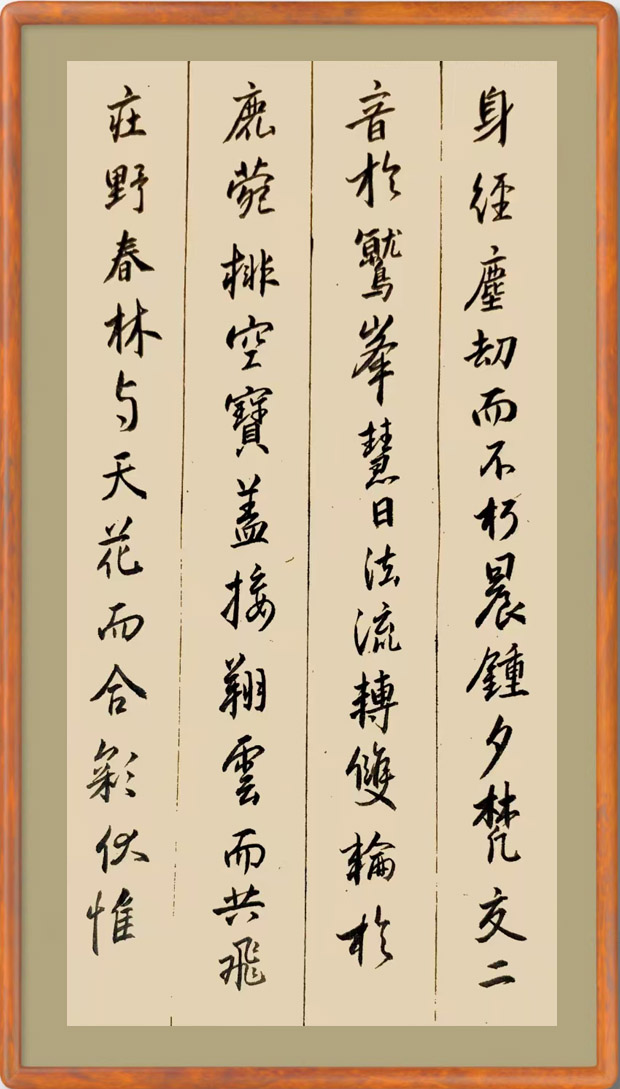 身經塵劫而不朽晨鍾夕梵交二
音於鷲峯慧日法流轉雙輪於
鹿菀排空寶盖接翔雲而共飛
庄野春林与天花而合彩伏惟